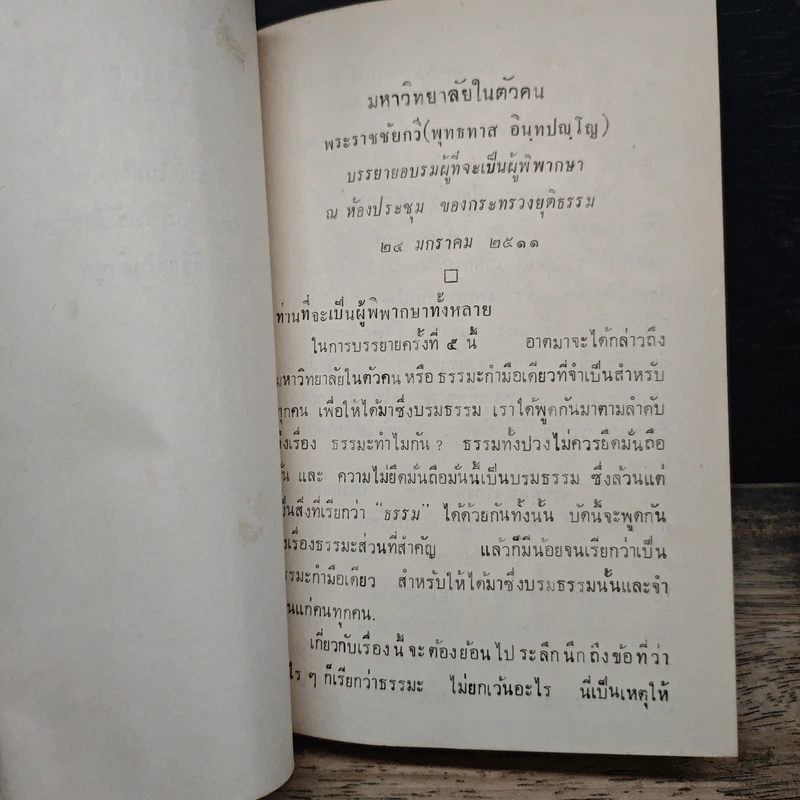 มหาวิทยาลัยในตัวคน
พระราชชัยกวี(พุทธทาส อินฺทปญฺโญ)
บรรยายอบรมผู้ที่จะเป็นผู้พิพากษา
ณ ห้องประชุม ของกระทรวงยุติธรรม
๒๔ มกราคม ๒๕๑๑
ท่านที่จะเป็นผู้พิพากษาทั้งหลาย
ในการบรรยายครั้งที่ ๕ นี้ อาตมาจะได้กล่าวถึง
มหาวิทยาลัยในตัวคน หรือ ธรรมะกำมือเดียวที่จำเป็นสำหรับ
ทุกคน เพื่อให้ได้มาซึ่งบรมธรรม เราได้พูดกันมาตามลำดับ
ถึงเรื่อง ธรรมะทำไมกัน ? ธรรมทั้งปวงไม่ควรยึดมั่นถือ
และ ความไม่ยึดมั่นถือมั่นนี้เป็นบรมธรรม ซึ่งล้วนแต่
เป็นสิ่งที่เรียกว่า "ธรรม" ได้ด้วยกันทั้งนั้น บัดนี้จะพูดกัน
ถึงเรื่องธรรมะส่วนที่สำคัญ แล้วก็มีน้อยจนเรียกว่าเป็น
ธรรมะกำมือเดียว สำหรับให้ได้มาซึ่งบรมธรรมนั้นและจำ
แก่คนทุกคน.
เกี่ยวกับเรื่องนี้ จะต้องย้อนไประลึกนึกถึงข้อที่ว่า
ๆ ก็เรียกว่าธรรมะ ไม่ยกเว้นอะไร นี่เป็นเหตุให้